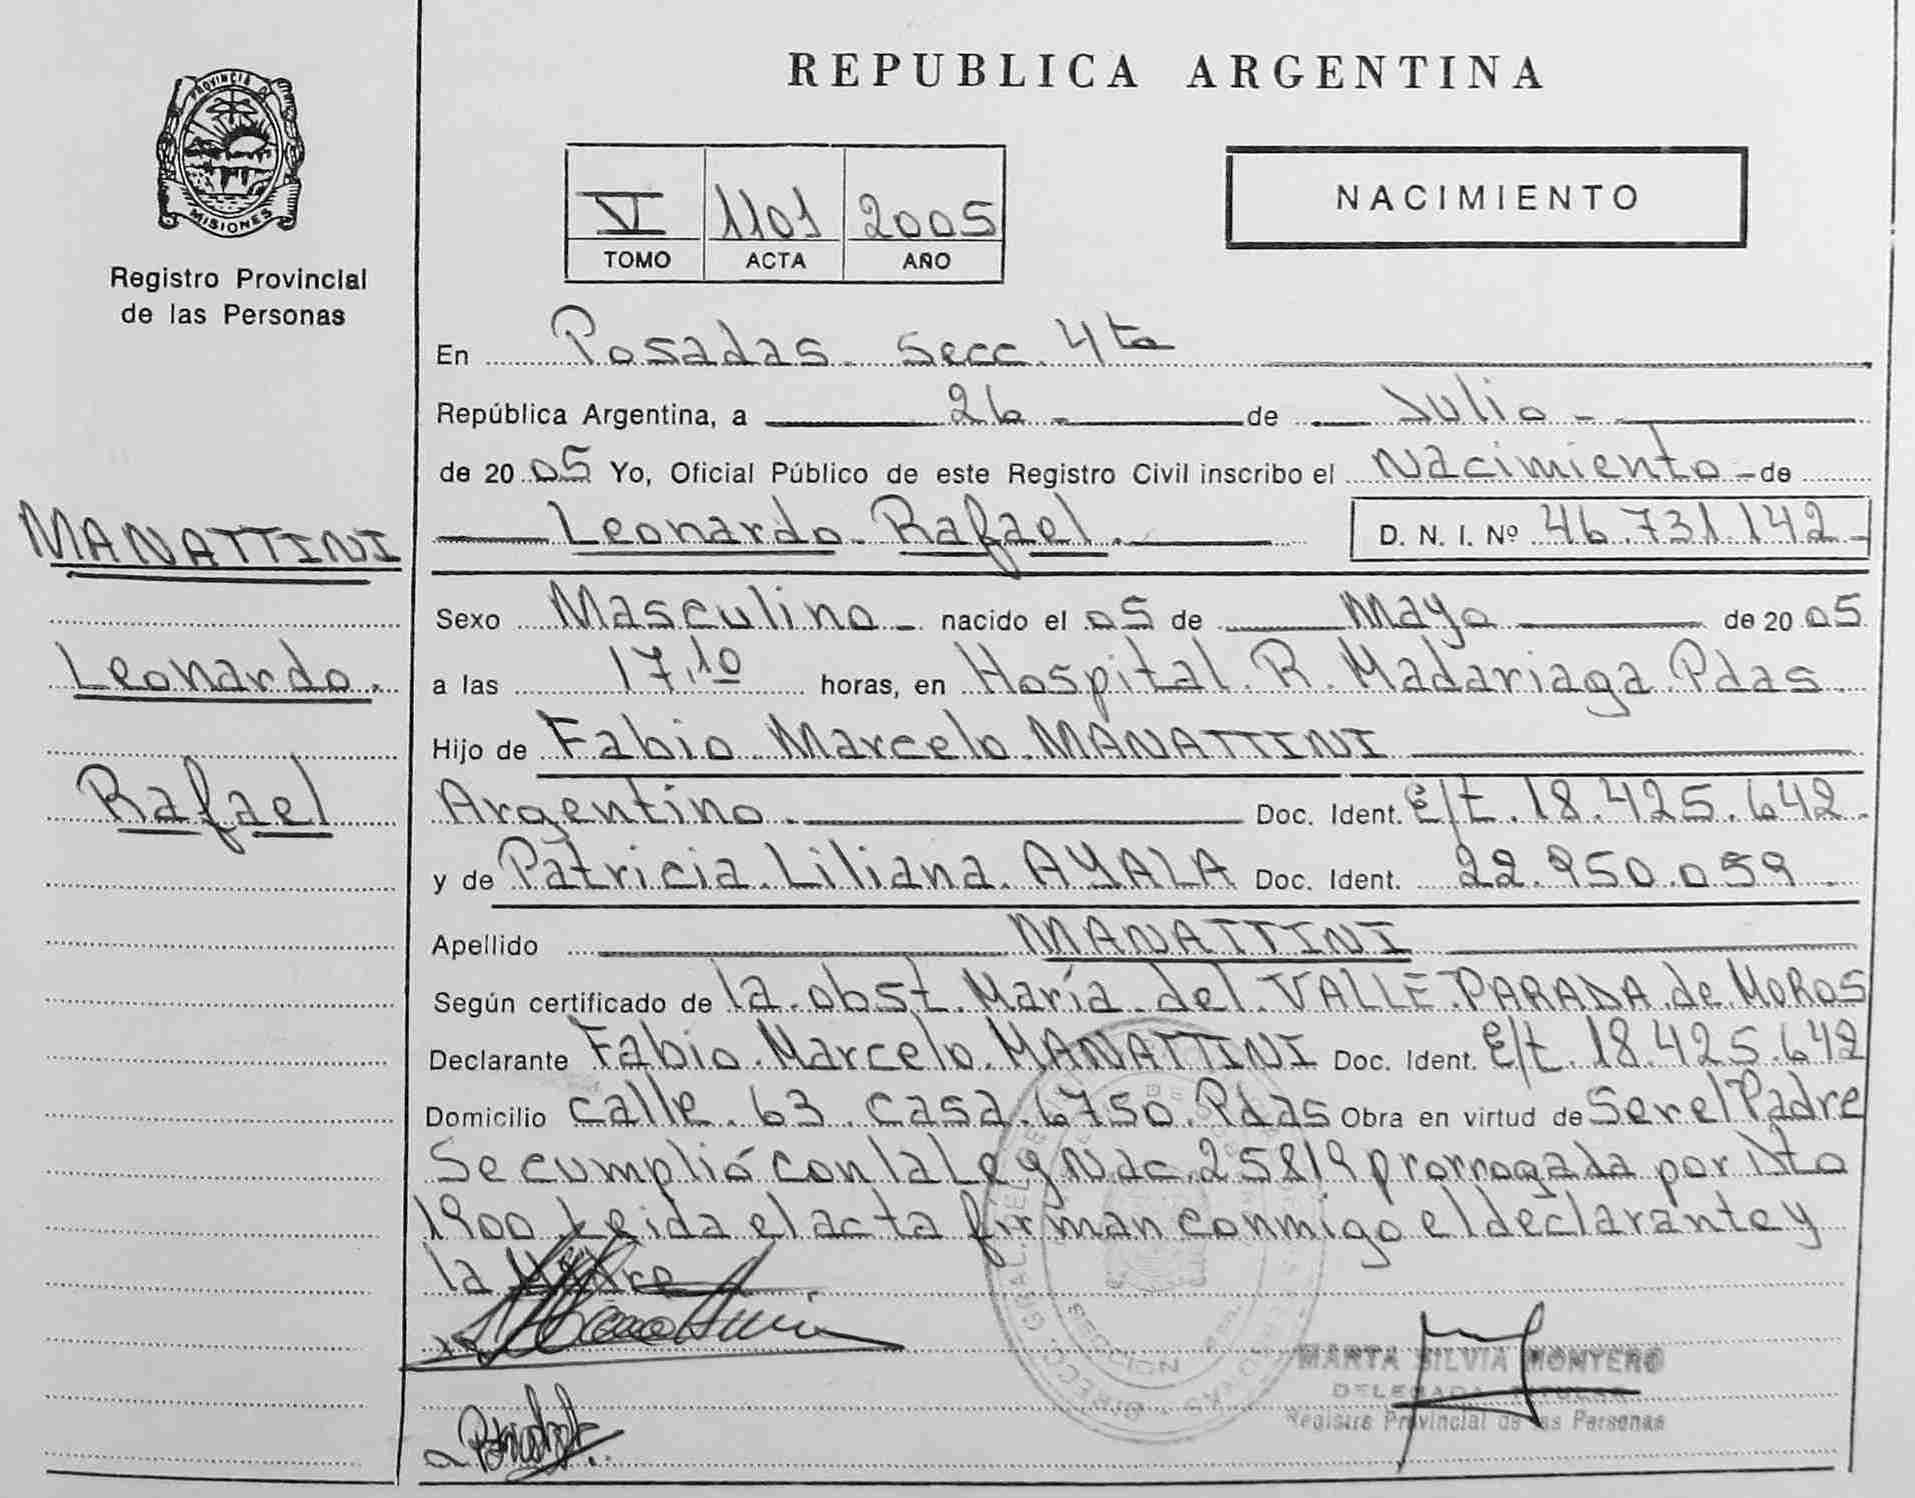 PROVINCIA D
MISIONES
Registro Provincial
de las Personas
MANATTINI
Leonardo.
Rafael
REPUBLICA ARGENTINA
VI 1101 2005
TOMO ACTA AÑO
NACIMIENTO
En Posadas. Secc. 4ta
República Argentina, a 26 - de Julio -
de 2005 Yo, Oficial Público de este Registro Civil inscribo el Nacimiento - de
Leonardo Rafael. D. N. I. Nº 46.731.142-
Sexo Masculino - nacido el 05 de Mayo de 2005
a las 17,10 horas, en Hospital. R. Madariaga Pdas.
Hijo de Fabio Marcelo MANATTINI
Argentino. Doc. Ident. E/t. 18.425.642.
y de Patricia Liliana AYALA Doc. Ident. 22.950.059
Apellido MANATTINI
Según certificado de la obst. María del VALLE PARADA de MOROS
Declarante Fabio Marcelo MANATTINI Doc. Ident. E/t. 18.425.642
Domicilio calle 63 casa 6750. Pdas Obra en virtud de Ser el Padre
Se cumplió con la Ley Nac. 25819 prorrogada por Dto
1900 Leida el acta firman conmigo el declarante y
la Madre
MARTA SILVIA MONTERO
DELEGADA TITULAR
Registro Provincial de las Personas